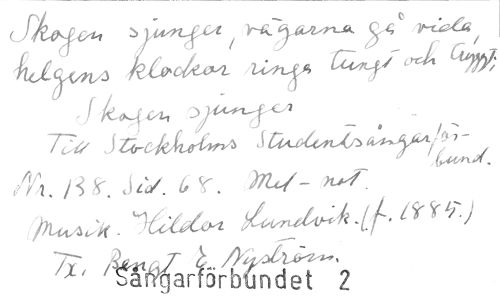 Skogen sjunger, vågorna gå vida,
helgens klockor ringa tungt och tryggt.
Skogen sjunger
Till Stockholms Studentsångarför-
bund.
Nr. 138. Sid. 68. Mel-not.
Musik. Hildor Lundvik. (f. 1885.)
Tx. Bengt E. Nyström.
Sångarförbundet 2